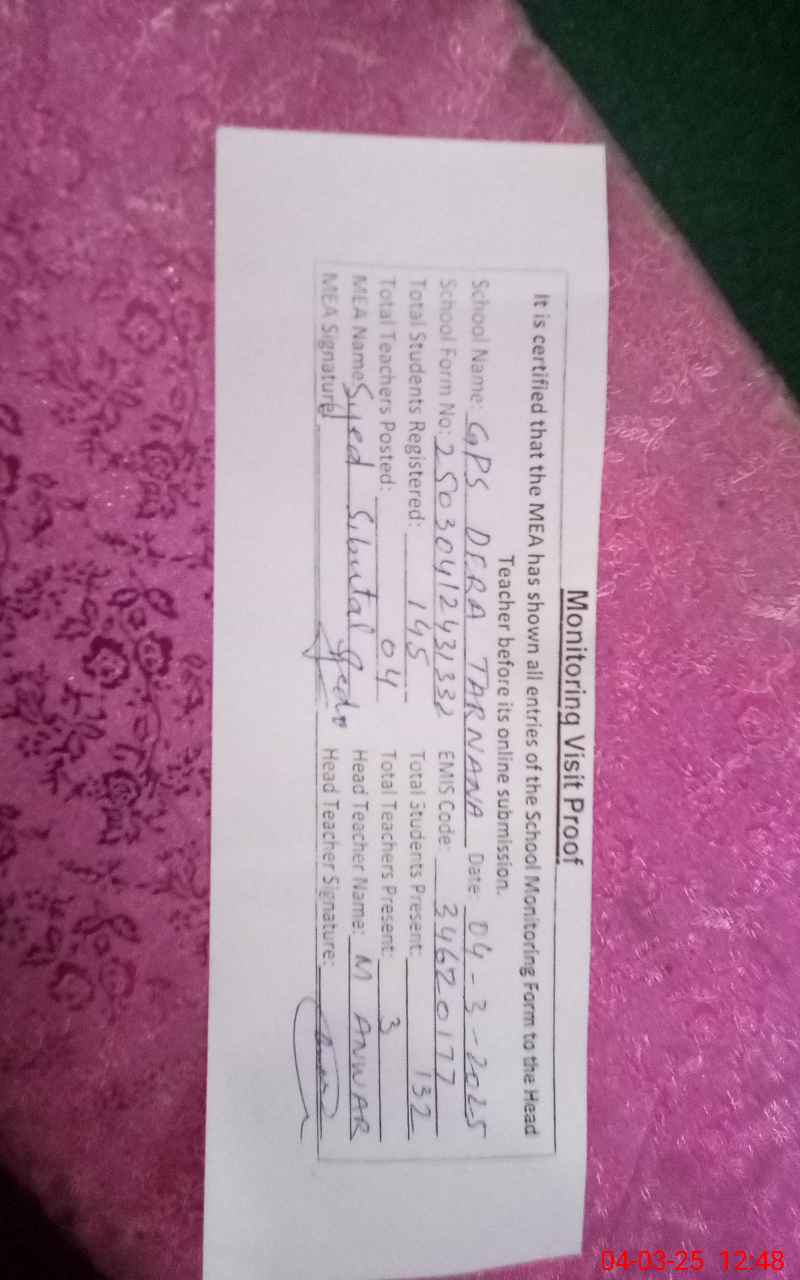 Monitoring Visit Proof
It is certified that the MEA has shown all entries of the School Monitoring Form to the Head
Teacher before its online submission.
School Name: GPS DERA TARNANA Date: 04-3-2025
School Form No: 25030412431332 EMIS Code: 34620177
Total Students Registered: 145 Total Students Present: 132
Total Teachers Posted: 04 Total Teachers Present: 3
MEA Name: Syed Head Teacher Name: M ANWAR
MEA Signature: Head Teacher Signature:
04-03-25 12:48